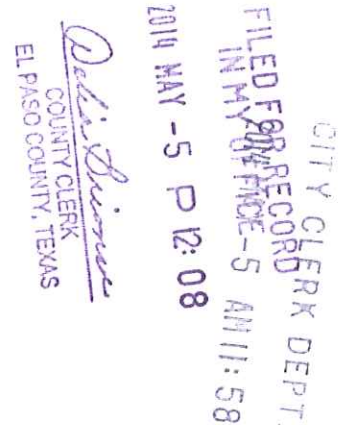 CITY CLERK DEPT.
2014 MAY -5 AM 11:58
FILED FOR RECORD
IN MY OFFICE
2014 MAY -5 P 12:08
COUNTY CLERK
EL PASO COUNTY, TEXAS